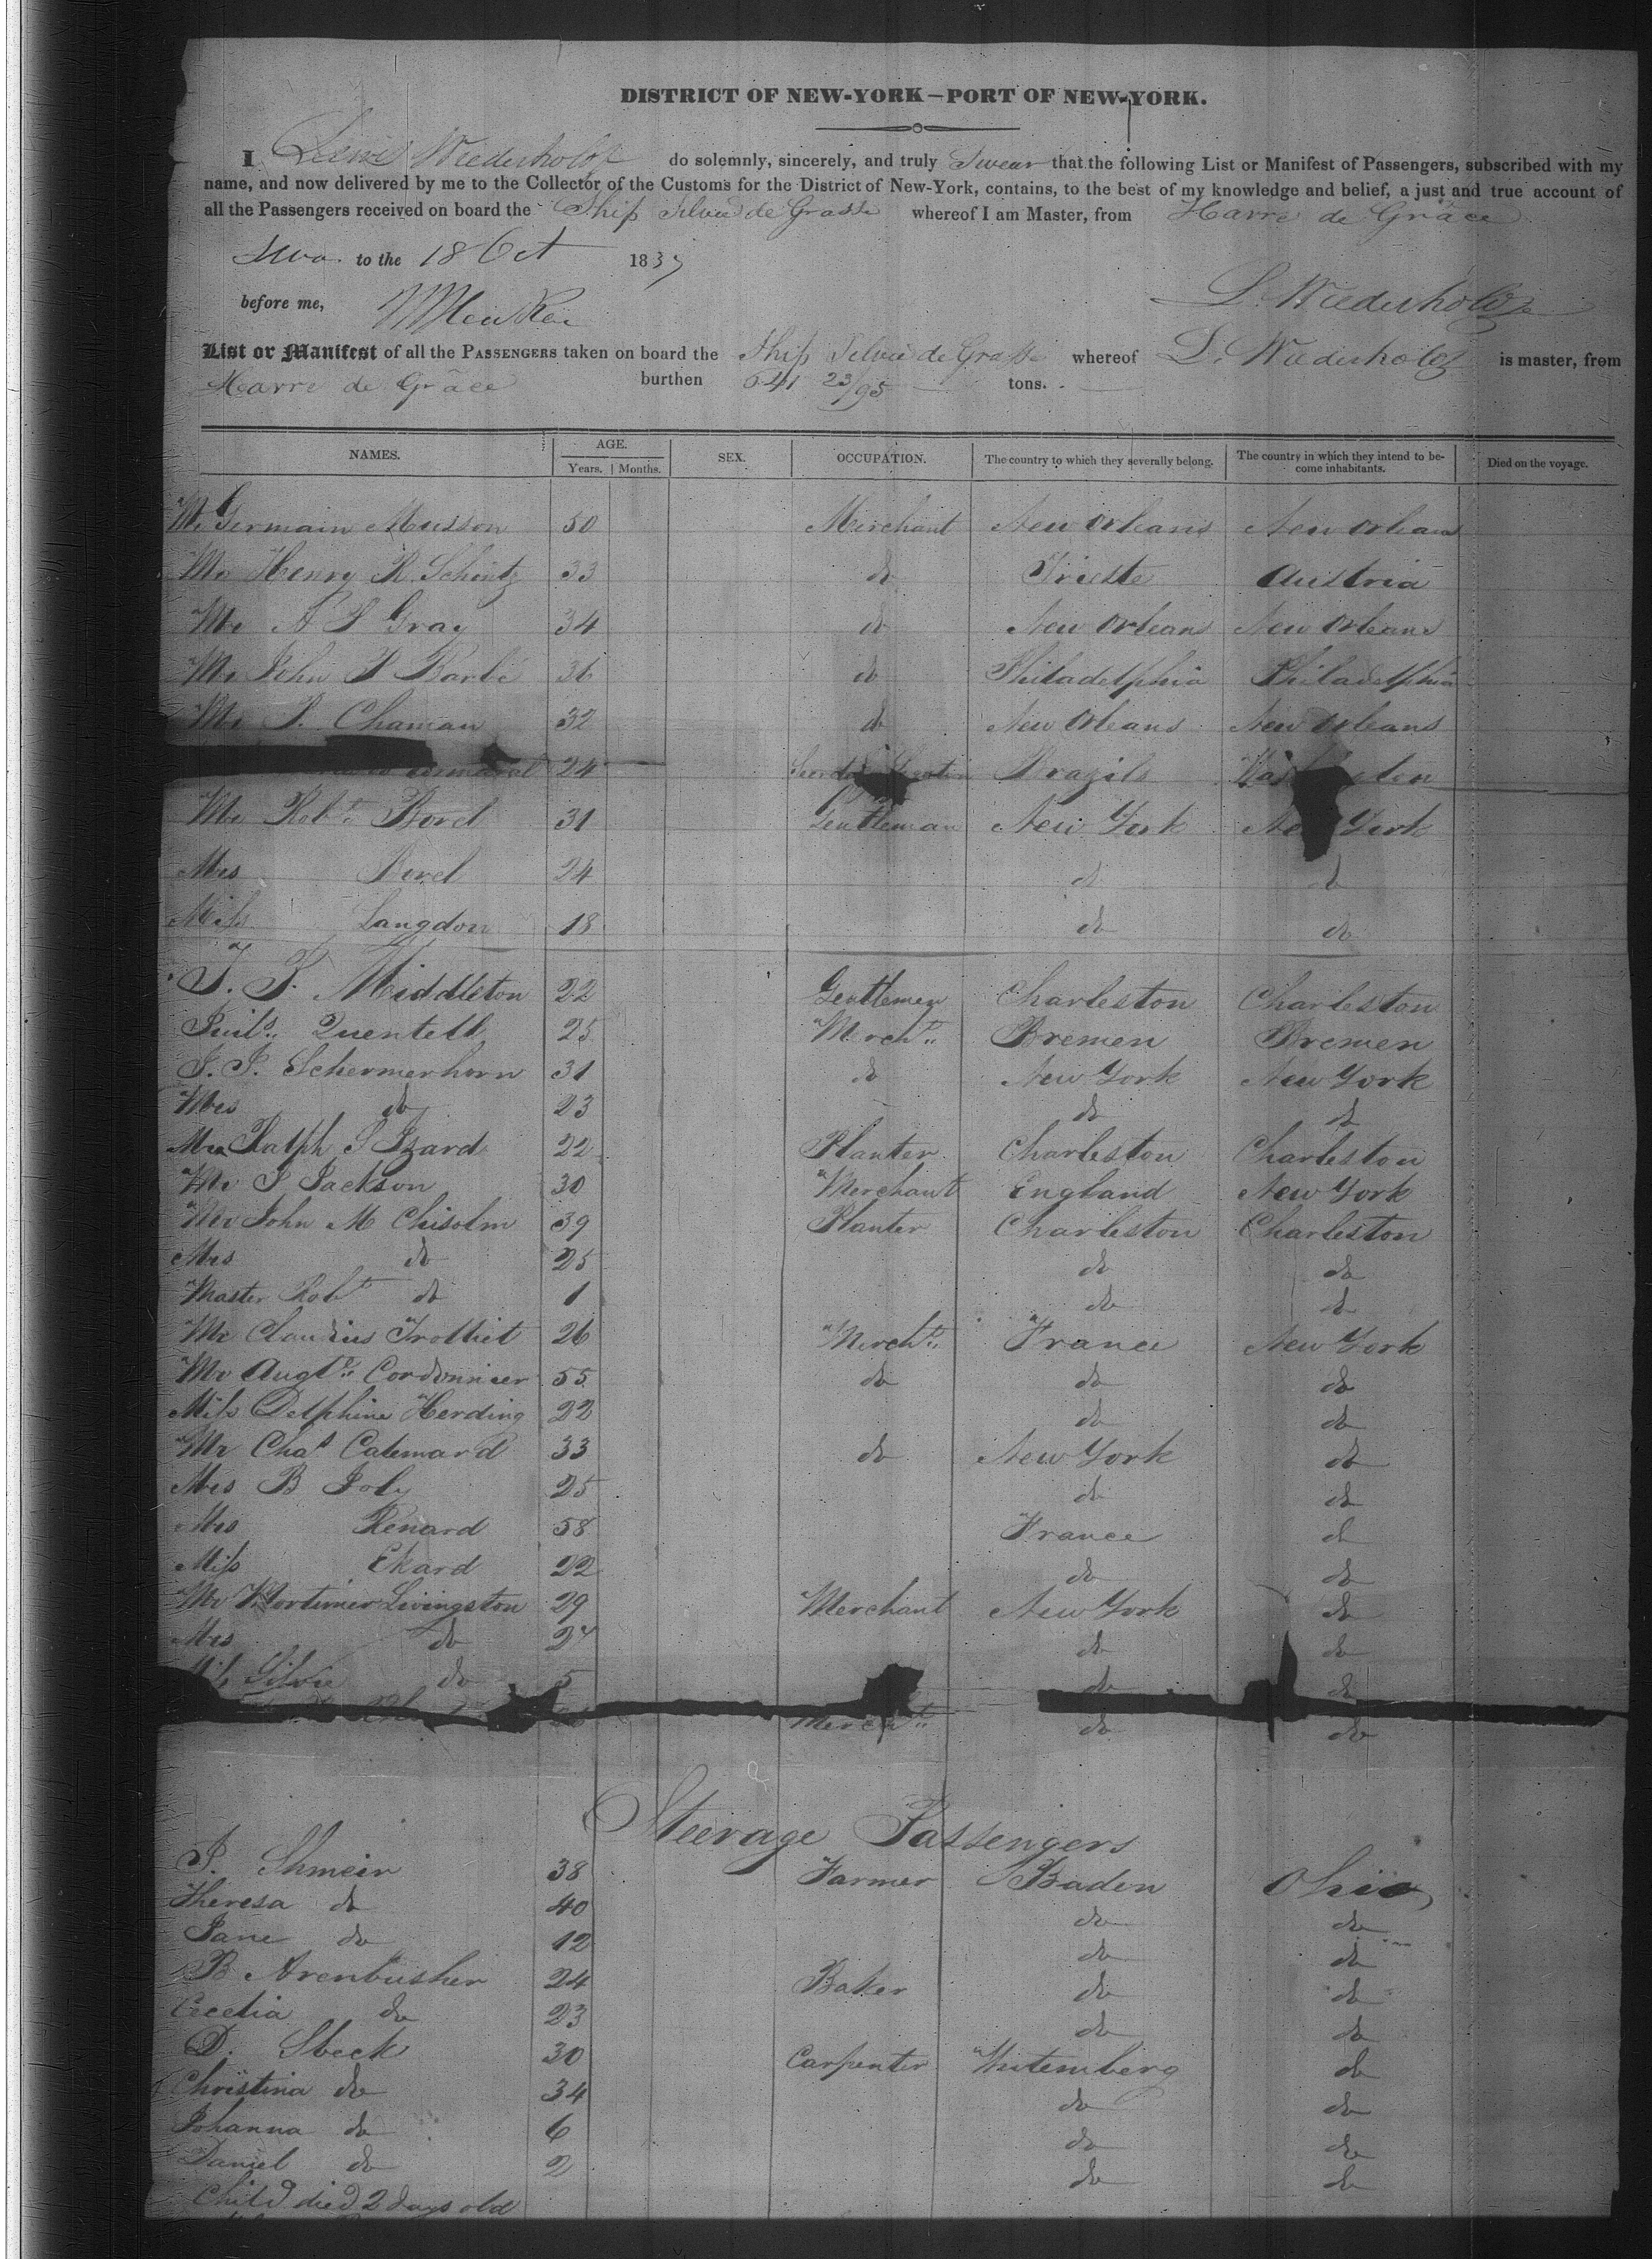 DISTRICT OF NEW-YORK—PORT OF NEW-YORK.
I Lewis Wiederholdt do solemnly, sincerely, and truly Swear that the following List or Manifest of Passengers, subscribed with my
name, and now delivered by me to the Collector of the Customs for the District of New-York, contains, to the best of my knowledge and belief, a just and true account of
all the Passengers received on board the Ship Silvie de Grasse whereof I am Master, from Havre de Grâce
to the 18 Oct 1837
before me,
L. Wiederholdt
List or Manifest of all the PASSENGERS taken on board the Ship Silvie de Grasse whereof L. Wiederholdt is master, from
Havre de Grâce burthen 641 23/95 tons.
NAMES. AGE. Years. Months. SEX. OCCUPATION. The country to which they severally belong. The country in which they intend to become inhabitants. Died on the voyage.
Mr Germain Musson 50 Merchant New Orleans New Orleans
Mr Henry R. Schintz 33 do Trieste Austria
Mr Gray 34 do New Orleans New Orleans
Mr John Barbé 36 do Philadelphia Philadelphia
Mr Chaman 32 do New Orleans New Orleans
24 Brazils
Mr Robt Borel 31 Gentleman New York New York
Mrs Borel 24 do do
Miss Langdon 18 do do
Middleton 22 Gentlemen Charleston Charleston
Quentell 25 Mercht Bremen Bremen
Schermerhorn 31 do New York New York
Mrs do 23 do do
Mr Ralph S Izard 22 Planter Charleston Charleston
Mr J Jackson 30 Merchant England New York
Mr John M Chisolm 39 Planter Charleston Charleston
Mrs do 25 do do
Master Robt do 1 do do
Mr Claudius Trolliet 26 Mercht France New York
Mr Augte Cordonnier 55 do do do
Miss Delphine Herding 22 do do
Mr Chas Catemard 33 do New York do
Mrs B Joly 25 do do
Mrs Renard 58 France do
Miss Ekard 22 do do
Mr Mortimer Livingston 29 Merchant New York do
Mrs do do do
Miss Silvie do 5 do do
Mercht do do
Steerage Passengers
Shmeir 38 Farmer Baden Ohio
Theresa do 40 do do
Jane do 12 do do
B Arenbusher 24 Baker do do
Cecelia do 23 do do
D. Sbeck 30 Carpenter Wutemberg do
Christina do 34 do do
Johanna do 6 do do
Daniel do 2 do do
Child died 2 days old